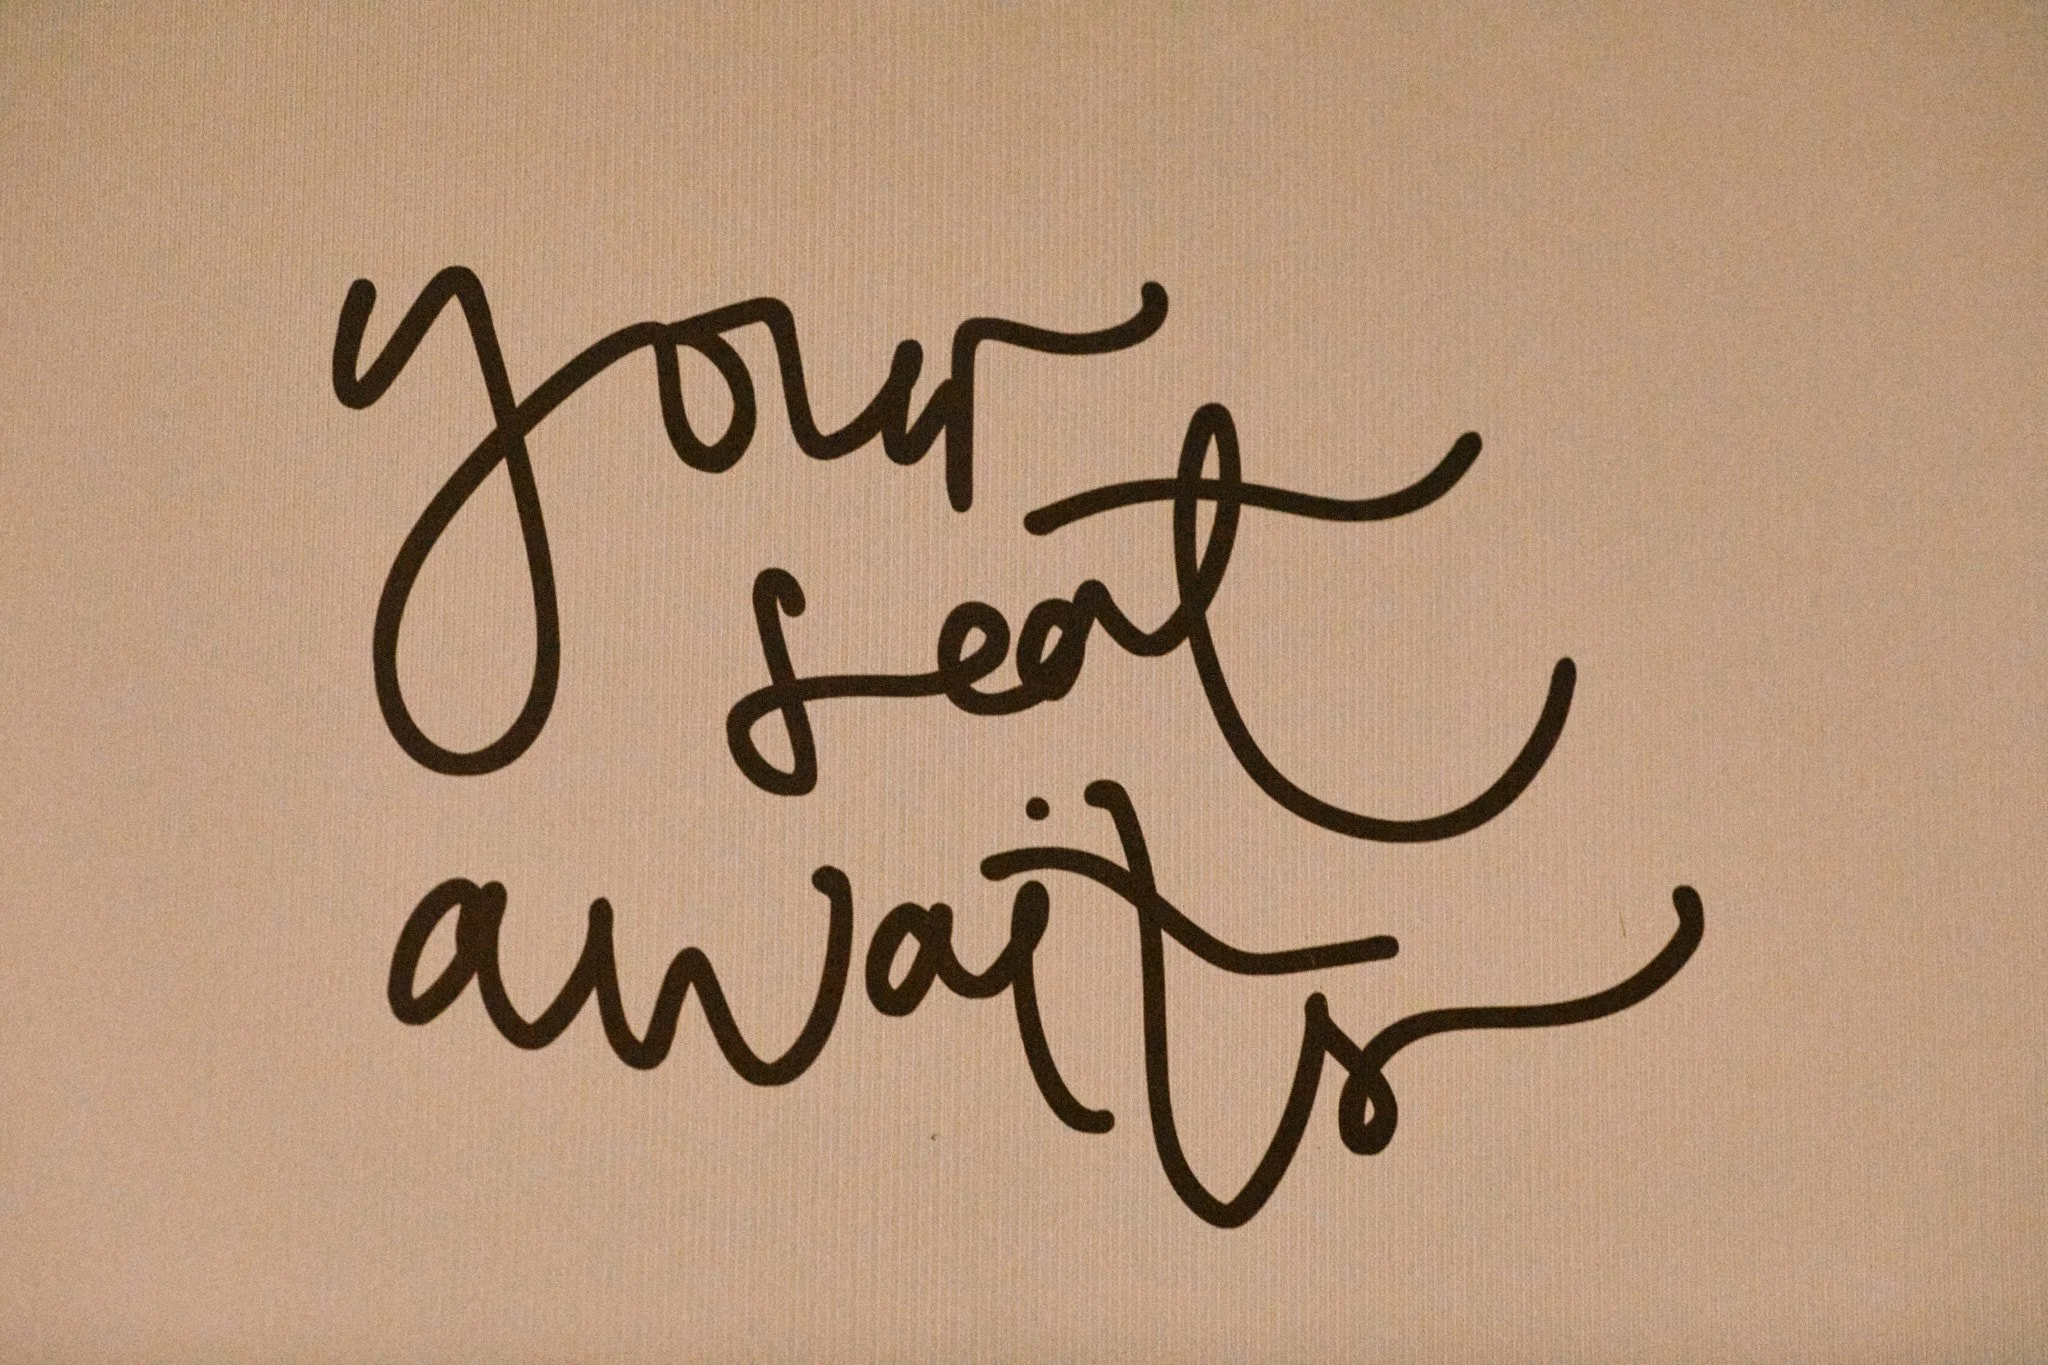 your
seat
awaits